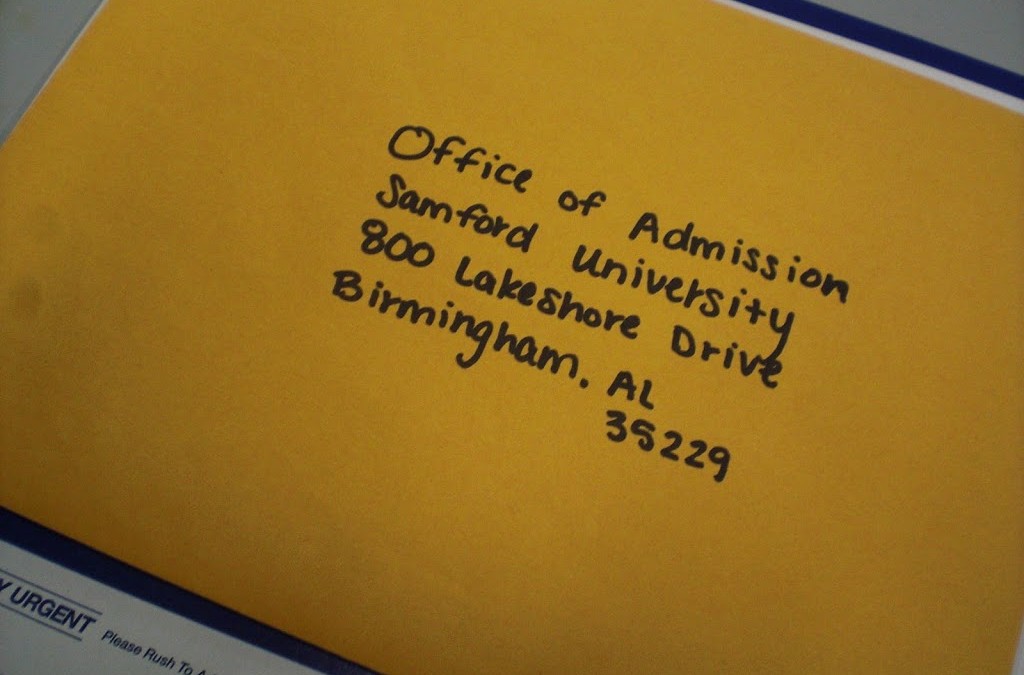 Office of Admission
Samford University
800 Lakeshore Drive
Birmingham. AL
35229
URGENT
Please Rush To